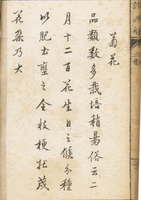 菊花
品類數多栽培稍易俗云二
月十二百花生日之候分種
以肥土壅之令枝梗壯茂
花朶乃大